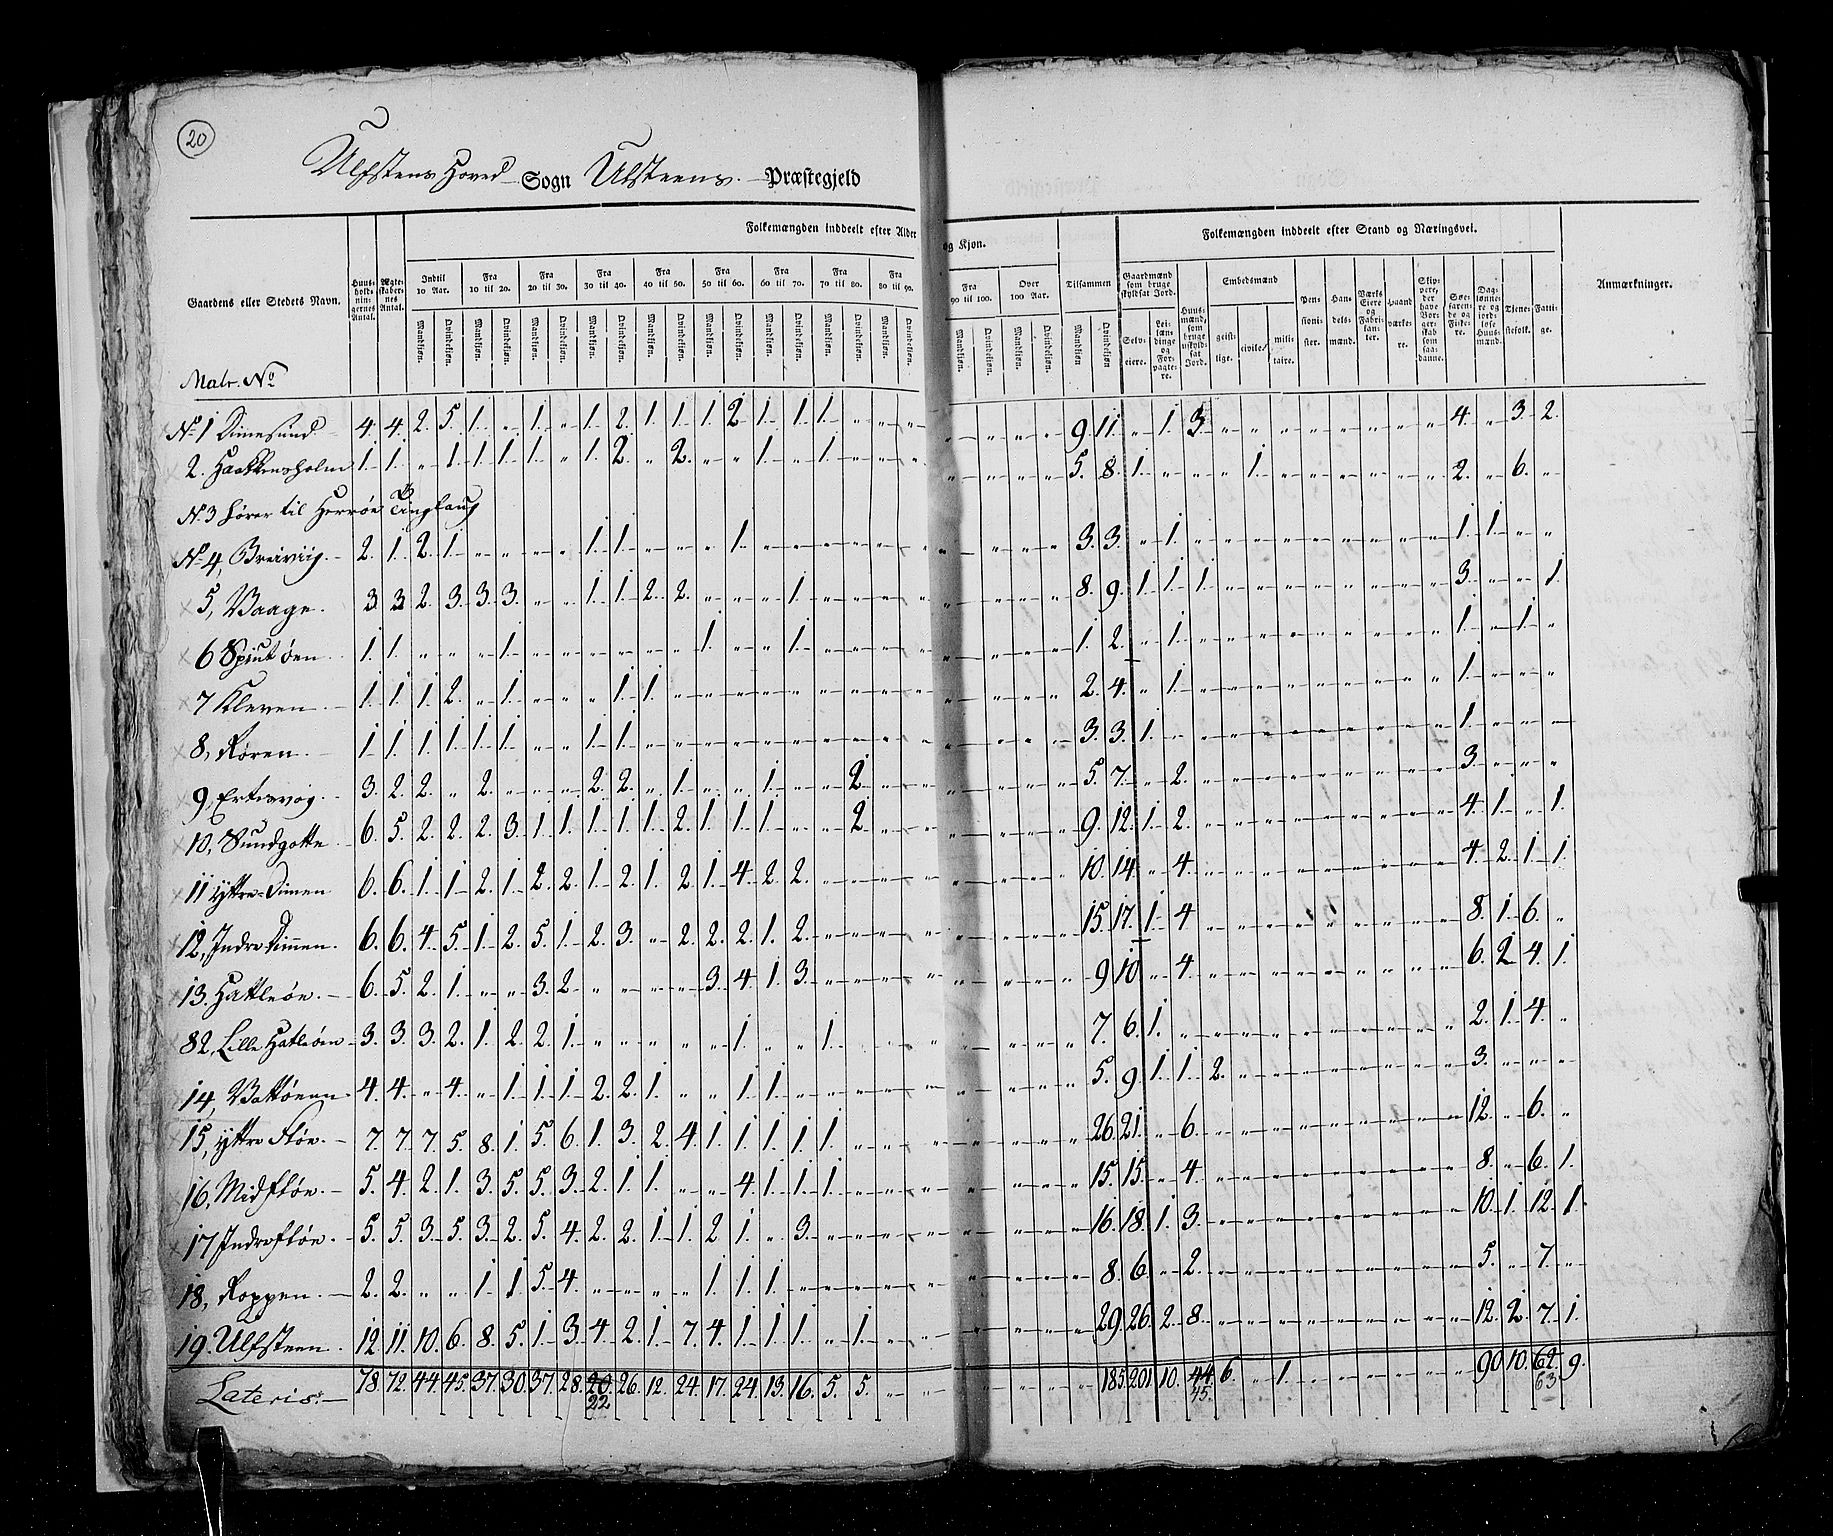 20
Ulfstens Hoved Sogn Ulsteens Præstegjeld
Folkemængden inddeelt efter Alder og Kjøn. Folkemængden inddeelt efter Stand og Næringsvei.
Gaardens eller Stedets Navn. Huus-holdningernes Antal. Ægteskabernes Antal. Indtil 10 Aar. Fra 10 til 20. Fra 20 til 30. Fra 30 til 40. Fra 40 til 50. Fra 50 til 60. Fra 60 til 70. Fra 70 til 80. Fra 80 til 90. Fra 90 til 100. Over 100 Aar. Tilsammen Gaardmænd som bruge skyldsat Jord. Huusmænd, som bruge uskyldsat Jord. Embedsmænd Pensionister. Handelsmænd. Værks Eiere og Fabrikanter. Haandværkere. Skippere, der have Borgerskab som saadanne. Søefarende og Fiskere. Daglønnere og jordløse Huusmænd. Tjenestefolk. Fattige. Anmærkninger.
Mandkjøn. Qvindekjøn. Mandkjøn. Qvindekjøn. Mandkjøn. Qvindekjøn. Mandkjøn. Qvindekjøn. Mandkjøn. Qvindekjøn. Mandkjøn. Qvindekjøn. Mandkjøn. Qvindekjøn. Mandkjøn. Qvindekjøn. Mandkjøn. Qvindekjøn. Mandkjøn. Qvindekjøn. Mandkjøn. Qvindekjøn. Mandkjøn Qvindekjøn Selveiere. Leilændinge og Forpagtere. geistlige. civile. militaire.
Matr. No
No 1 Dimesund 4. 4. 2. 5. 1. „ 1. „ 1. 2. 1. 1. 1. 2. 1. 1. 1. „ „ „ „ „ „ „ 9. 11. „ 1. 3. „ „ „ „ „ „ „ „ 4. „ 3. 2.
2. Haakkensholm 1. 1. „ 1. 1. 1. 1. „ 1. 2. „ 2. „ „ 1. „ 1. „ „ „ „ „ „ „ 5. 8. 1. „ „ „ 1. „ „ „ „ „ „ 2. „ 6. „
No 3 hører til Herrøe Tinglaug
No 4, Breiviig. 2. 1. 2. 1. „ „ „ „ 1. 1. „ „ „ 1. „ „ „ „ „ „ „ „ „ „ 3. 3. „ 1. „ „ „ „ „ „ „ „ „ 1. 1. „ „
5, Vaage. 3. 3. 2. 3. 3. 3. „ „ 1. 1. 2. 2. „ „ „ 1. „ „ „ „ „ „ „ „ 8. 9. 1. 1. 1. „ „ „ „ „ „ „ „ 3. „ „ 1.
6 Spiutøen. 1. 1. „ „ „ 1. „ „ „ „ „ „ 1. „ „ 1. „ „ „ „ „ „ „ „ 1. 2. „ 1. „ „ „ „ „ „ „ „ „ 1. „ 1. „
7 Kleven. 1. 1. 1. 2. „ 1. „ „ „ 1. 1. „ „ „ „ „ „ „ „ „ „ „ „ „ 2. 4. „ 1. „ „ „ „ „ „ „ „ „ 1. „ „ „
8, Røren. 1. 1. 1. 1. 1. 1. „ „ 1. 1. „ „ „ „ „ „ „ „ „ „ „ „ „ „ 3. 3. 1. „ „ „ „ „ „ „ „ „ „ 1. „ „ „
9, Ertesvog. 3. 2. 2. „ 2. „ „ „ 2. 2. „ 1. „ „ 1. „ „ 2. „ „ „ „ „ „ 5. 7. „ 2. „ „ „ „ „ „ „ „ „ 3. „ „ „
10, Sundgotte. 6. 5. 2. 2. 2. 3. 1. 1. 1. 1. 1. 2. 1. 1. 1. „ „ 2. „ „ „ „ „ „ 9. 12. 1. 2. „ „ „ „ „ „ „ „ „ 4. 1. „ 1.
11 Yttre-Dimen 6. 6. 1. 1. 2. 1. 2. 2. 1. 2. 1. 2. 1. 4. 2. 2. „ „ „ „ „ „ „ „ 10. 14. „ 4. „ „ „ „ „ „ „ „ „ 4. 2. 1. 1.
12, Indre Dimen. 6. 6. 4. 5. 1. 2. 5. 1. 2. 3. „ 2. 2. 2. 1. 2. „ „ „ „ „ „ „ „ 15. 17. 1. 4 „ „ „ „ „ „ „ „ „ 8. 1. 6. „
13. Hattleøe. 6. 5. 2. 1. „ „ 3. 2. „ „ „ „ 3. 4. 1. 3. „ „ „ „ „ „ „ „ 9. 10. „ 4. „ „ „ „ „ „ „ „ „ 6. 2 4. 1.
82, Lille Hatleøen 3. 3. 3. 2. 1. 2. 2. 1. „ „ „ „ „ 1. „ „ 1. „ „ „ „ „ „ „ 7. 6. 1. „ „ „ „ „ „ „ „ „ „ 2. 1. 4. „
14, Vattøenn 4. 4. „ 4. „ 1. 1. 1. 2. 2. 1. „ „ 1. 1. „ „ „ „ „ „ „ „ „ 5. 9. 1. 1. 2. „ „ „ „ „ „ „ „ 3. „ „ „
15, Yttre Fløe. 7. 7. 7. 5. 8. 1. 5. 6. 1. 3. 2. 4. 1. 1. 1. 1. 1. „ „ „ „ „ „ „ 26. 21. „ 6. „ „ „ „ „ „ „ „ „ 12. „ 6. „
16, Midfløe. 5. 4. 2. 1. 3. 5. 5. 3. 2. 1. 1. „ „ 4. 1. 1. 1. „ „ „ „ „ „ „ 15. 15. „ 4. „ „ „ „ „ „ „ „ „ 8. „ 6. 1.
17 Indrefløe. 5. 5. 3. 5. 3. 2. 5. 4. 2. 2. 1. 1. 2 1. „ 3. „ „ „ „ „ „ „ „ 16. 18. 1. 3. „ „ „ „ „ „ „ „ „ 10. 1. 12. 1.
18, Roppen. 2. 2. „ „ 1 1. 5. 4. „ „ „ „ 1. 1. 1. „ „ „ „ „ „ „ „ „ 8. 6. „ 2. „ „ „ „ „ „ „ „ „ 5. „ 7. „
19. Ulfsteen. 12. 11. 10. 6. 8. 5. 1. 3. 4. 2. 1. 7. 4. 1. 1. 1. „ 1. „ „ „ „ „ „ 29. 26. 2. 8. „ „ „ „ „ „ „ „ „ 12. 2. 7. 1.
Lateris. 78. 72. 44. 45. 37. 30. 37. 28. 20. 26. 12. 24. 17. 24. 13. 16. 5. 5. „ „ „ „ „ „ 185. 201. 10. 44. 6. „ 1. „ „ „ „ „ „ 90. 10. 62. 9.
22. 45. 63